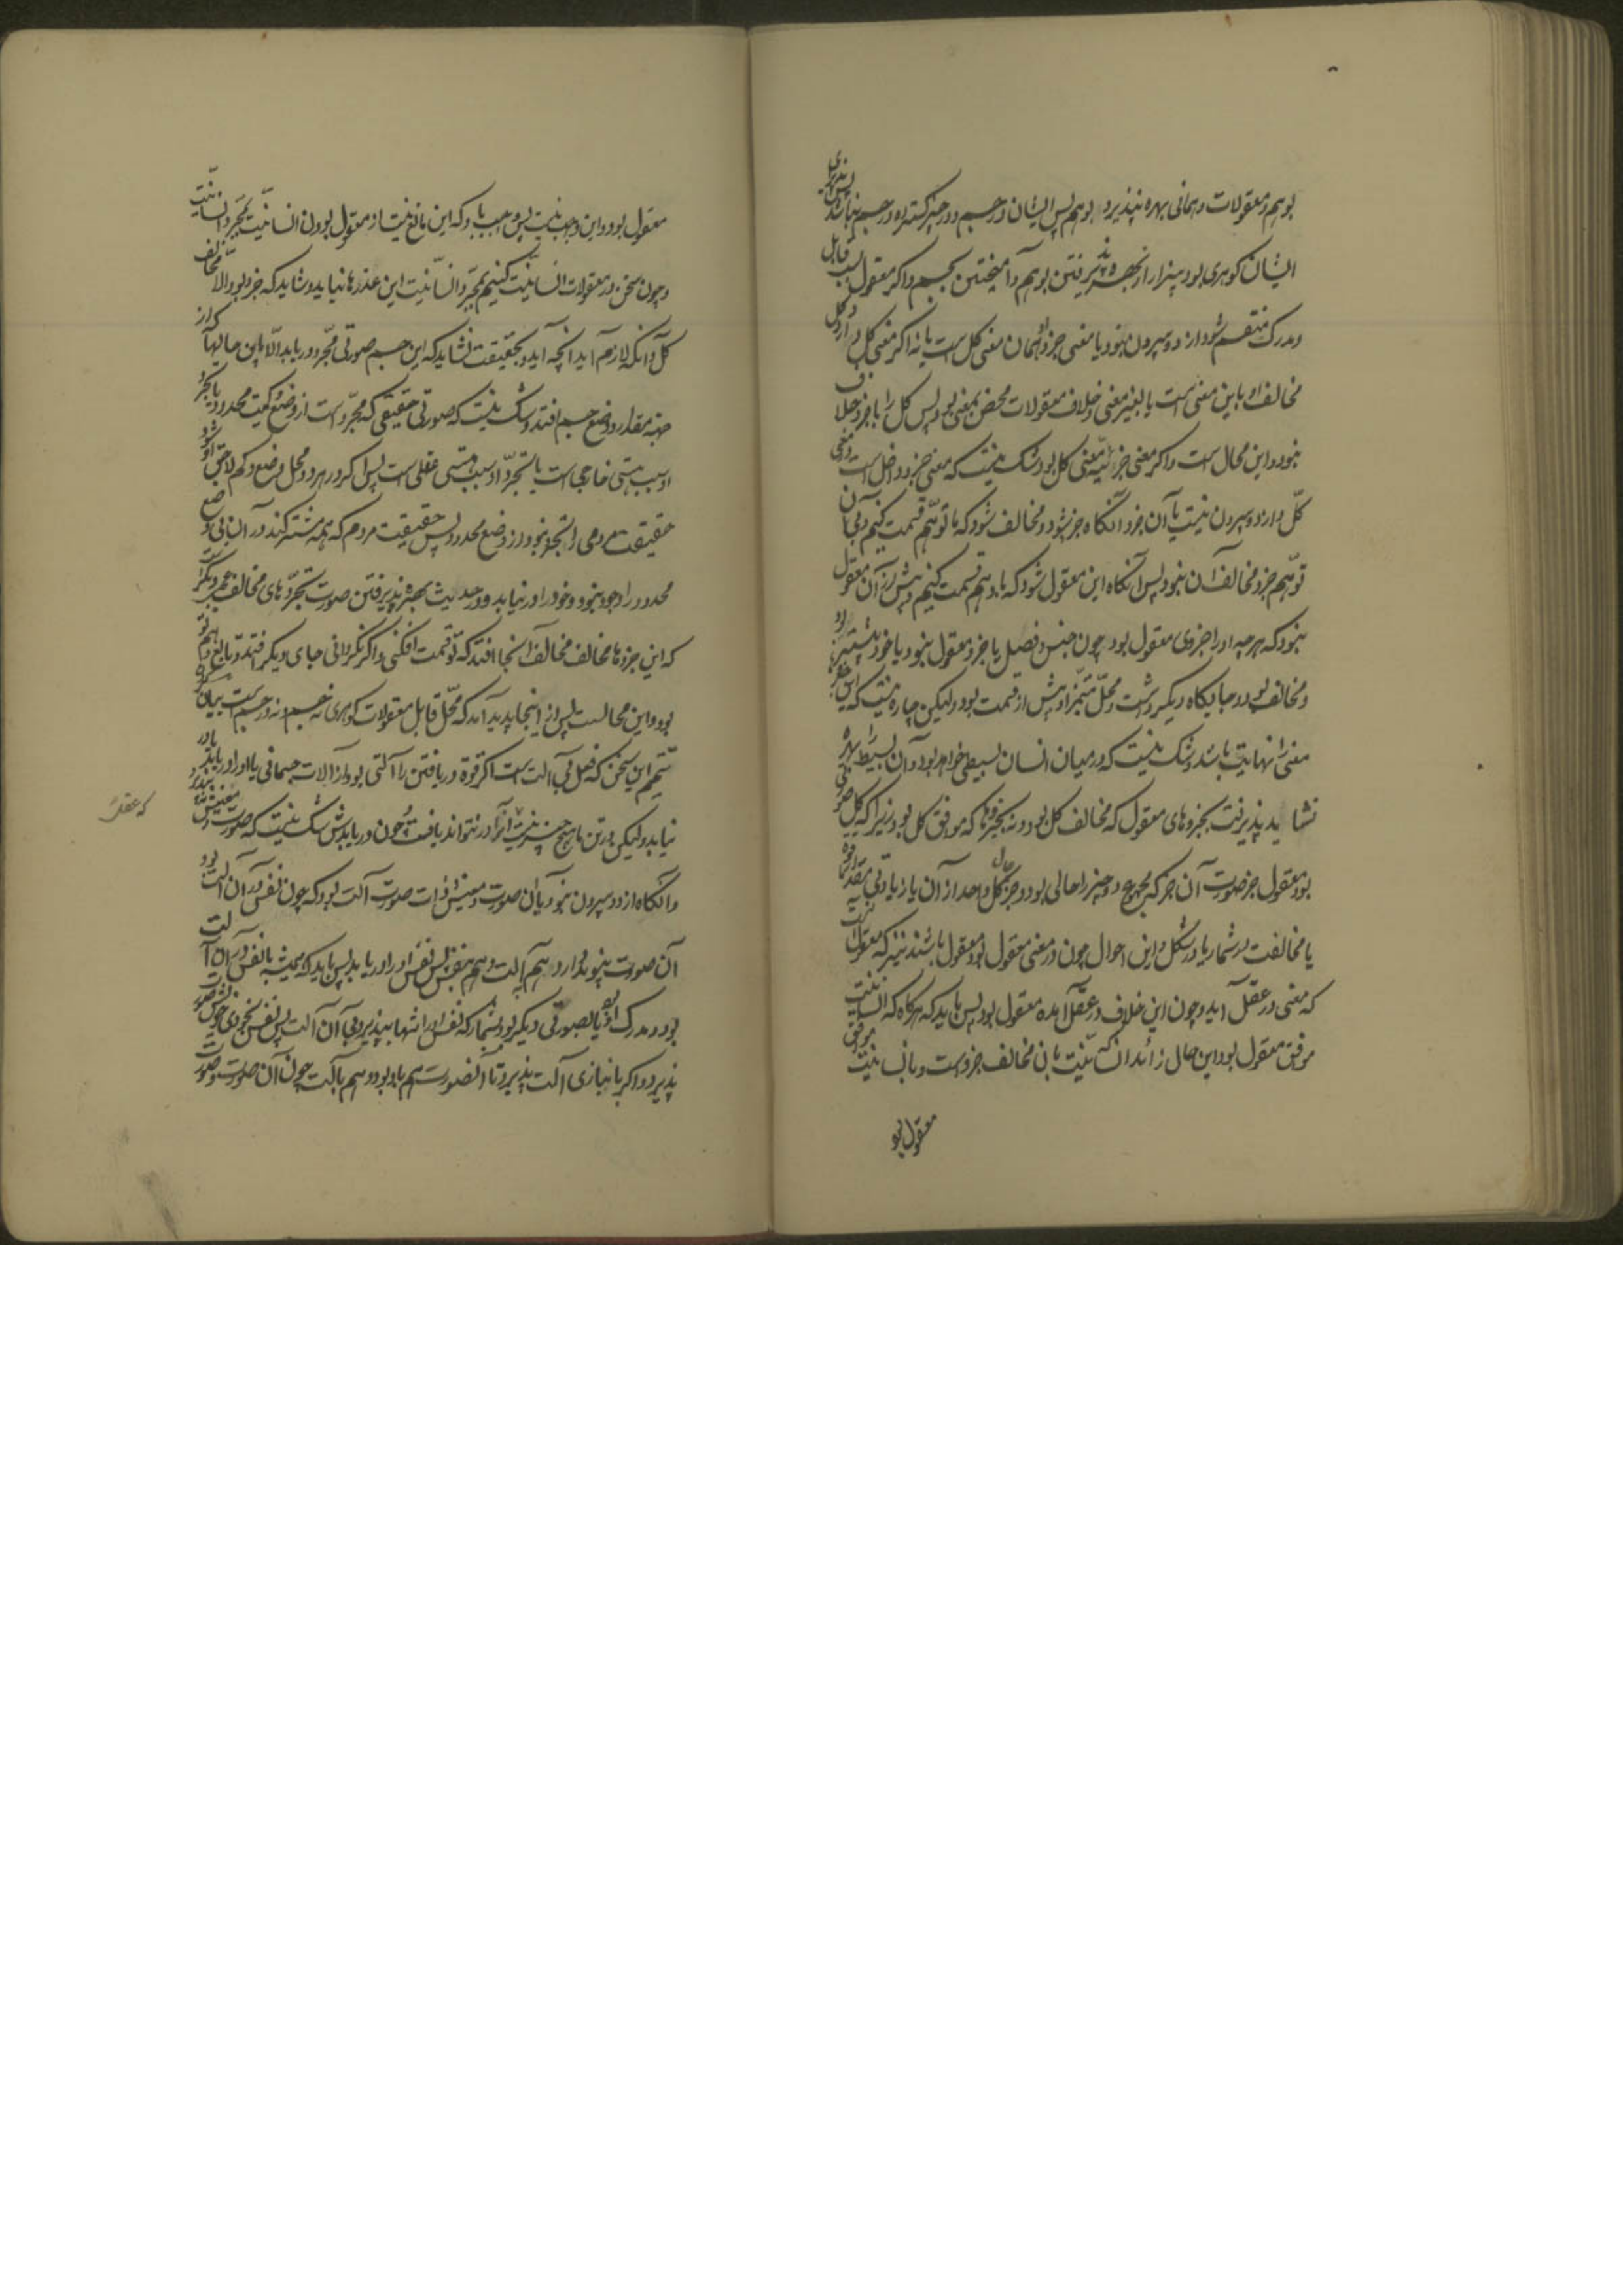 بوهم و معقولات وهمانی بهره نپذیرد بوهم پس ایشان در جسم و در چیز گسترده در جسم نباشد
ایشان گوهری بود بیزار از بهره پذیرفتن بوهم و آمیختن بجسم و اگر معقول بسبب قابل
و مدرک منقسم شود از دو بیرون نبود یا معنی جزو او همان معنی کل است یا نه اگر معنی کل دارد و کل
مخالف او باین معنی است یا بغیر معنی و خلاف معقولات محض بمعنی بود پس کل را با جزو خلاف
نبود و این محال است و اگر معنی جزو نه معنی کل بود شک نیست که معنی جزو داخل است در معنی
کل و از دو بیرون نیست یا آن جزو آنگاه جزو شود و مخالف شود که ما توهم قسمت کنیم و بی آن
توهم جزو مخالف آن نبود پس آنگاه این معقول شود که باوهم قسمت کنیم و پیش از آن معقول
نبود که هر چه او را جزوی معقول بود چون جنس و فصل یا جزو معقول نبود یا خود پیشتر بود
و مخالف بود در جایگاه دیگر داشت و محل متمیز او پیش از قسمت بود ولیکن چاره نیست که این جزو
معنی را نهایت باشد و شک نیست که در میان انسان بسیطی خواهد بود و آن بسیط را بهره
نشاید پذیرفت بجزوهای معقول که مخالف کل بود و نه بجزوها که موافق کل بود زیرا که کل صورتی
بود معقول جز صورت آن جزو که مجموع دو چیز را حالی بود جز حال کل واحد از آن یا زیادتی مقدار بود
یا مخالفت در شمار یا در شکل و این احوال چون در معنی معقول بود معقول باشند نیز که معقول آنست
که معنی در عقل آید و چون این خلاف در عقل آمده معقول بود پس باید که هرگاه که انسانیت
موافق معقول بود این حال زائد انسانیت بآن مخالف جزوست و بانسانیت موافق
معقول بود
معقول بود و این واجب نیست پس واجب باید که این مانع نیست از معقول بودن انسانیت بمجرد انسانیت
و چون سخن در معقولات انسانیت کنیم بمجرد انسانیت این عذرها نیاید و شاید که جزو بود و الا مخالف
کل و آنکه لازم آید آنچه آید و بحقیقت نشاید که این جسم صورتی مجرد دریابد الا باین حالها که از
جهة مقدار و وضع جسم افتد و شک نیست که صورتی حقیقی که مجرد است از وضع و کمیت محدود یا تجرد
او سبب هستی خارجی است یا تجرد او سبب هستی عقلی است پس اگر در هر دو محل وضع و کم لاحق او شود
حقیقت مردمی را تجرد نبود از وضع محدود پس حقیقت مردم که همه مشترکند در آن بی وضع
محدود را وجود نبود و خود را در نیابد و در حدیث بهره پذیرفتن صورت تجردهای مخالف
که این جزوها مخالف مخالف آنجا افتد که تو قسمت افکنی و اگر نگردانی جای دیگر افتد و تابع وهم تو
بود و این محالست پس از اینجا پدید آمد که محل قابل معقولات گوهری نه جسم و نه در جسم است بیان دیگر
تتمیم این سخن که فعل بی آلت است اگر قوة دریافتن را آلتی بود از آلات جسمانی یا او را دریابد یا در
نیابد ولیکن در تن ما هیچ چیز نیست آنرا در نتواند یافت و چون دریابدش شک نیست که صورت و معنیش پذیرد
و آنگاه از دو بیرون نبود یا آن صورت و معنیش ذات صورت آلت بود که چون نفس در آن آلت بود
آن صورت پیوند دارد هم بآلت و هم بنفس پس نفس او را دریابد پس باید که همیشه با نفس در آن آلت
بود و مدرک او بود یا بصورتی دیگر بود بشمار که نفس او را تنها بپذیرد بی آن آلت پس نفس بخودی خود صورت
پذیرد و اگر بانبازی آلت پذیرد تا آنصورت هم باو بود و هم بآلت چون آن صورت و صورت
که عقل